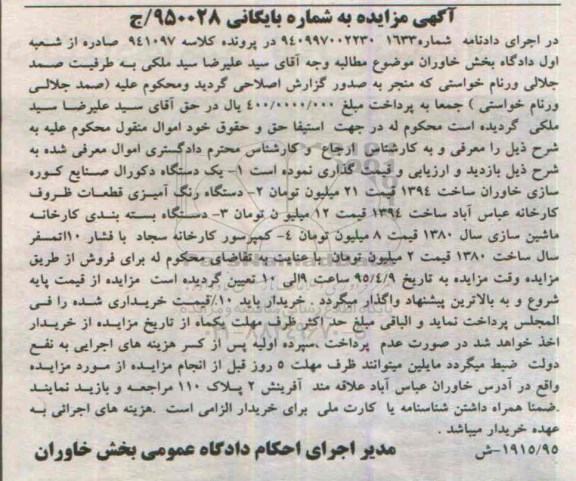 آگهی مزایده به شماره بایگانی ۹۵۰۰۲۸/ج
در اجرای دادنامه شماره۱۶۳۳ ۹۴۰۹۹۷۰۰۲۲۳۰ در پرونده کلاسه ۹۴۱۰۹۷ صادره از شعبه
اول دادگاه بخش خاوران موضوع مطالبه وجه آقای سید علیرضا سید ملکی به طرفیت صمد
جلالی ورنام خواستی که منجر به صدور گزارش اصلاحی گردید ومحکوم علیه (صمد جلالی
ورنام خواستی ) جمعا به پرداخت مبلغ ۴۰۰/۰۰۰۰/۰۰۰ یال در حق آقای سید علیرضا سید
ملکی گردیده است محکوم له در جهت استیفا حق و حقوق خود اموال منقول محکوم علیه به
شرح ذیل را معرفی و به کارشناس ارجاع و کارشناس محترم دادگستری اموال معرفی شده به
شرح ذیل بازدید و ارزیابی و قیمت گذاری نموده است ۱- یک دستگاه دکورال صنایع کوره
سازی خاوران ساخت ۱۳۹۴ قیمت ۲۱ میلیون تومان ۲- دستگاه رنگ آمیزی قطعات ظروف
کارخانه عباس آباد ساخت ۱۳۹۴ قیمت ۱۲ میلیو ن تومان ۳- دستگاه بسته بندی کارخانه
ماشین سازی سال ۱۳۸۰ قیمت ۸ میلیون تومان ۴- کمپرسور کارخانه سجاد با فشار ۱۰اتمسفر
سال ساخت ۱۳۸۰ قیمت ۲ میلیون تومان با عنایت به تقاضای محکوم له برای فروش از طریق
مزایده وقت مزایده به تاریخ ۹۵/۴/۹ ساعت ۹الی ۱۰ تعیین گردیده است مزایده از قیمت پایه
شروع و به بالاترین پیشنهاد واگذار میگردد . خریدار باید ۱۰٪قیمت خریداری شده را فی
المجلس پرداخت نماید و الباقی مبلغ حداکثر ظرف مهلت یکماه از تاریخ مزایده از خریدار
اخذ خواهد شد در صورت عدم پرداخت ،سپرده اولیه پس از کسر هزینه های اجرایی به نفع
دولت ضبط میگردد مایلین میتوانند ظرف مهلت ۵ روز قبل از انجام مزایده از مورد مزایده
واقع در آدرس خاوران عباس آباد علاقه مند آفرینش ۲ پلاک ۱۱۰ مراجعه و بازید نمایند
.ضمنا همراه داشتن شناسنامه یا کارت ملی برای خریدار الزامی است .هزینه های اجرائی به
عهده خریدار میباشد .
۱۹۱۵/۹۵-ش مدیر اجرای احکام دادگاه عمومی بخش خاوران